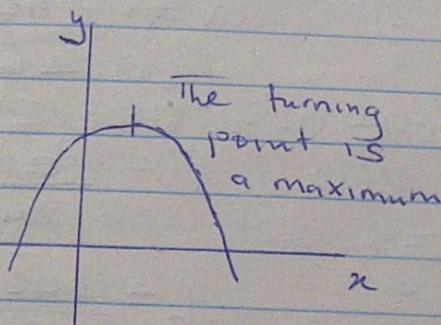 y
The turning
point is
a maximum
x